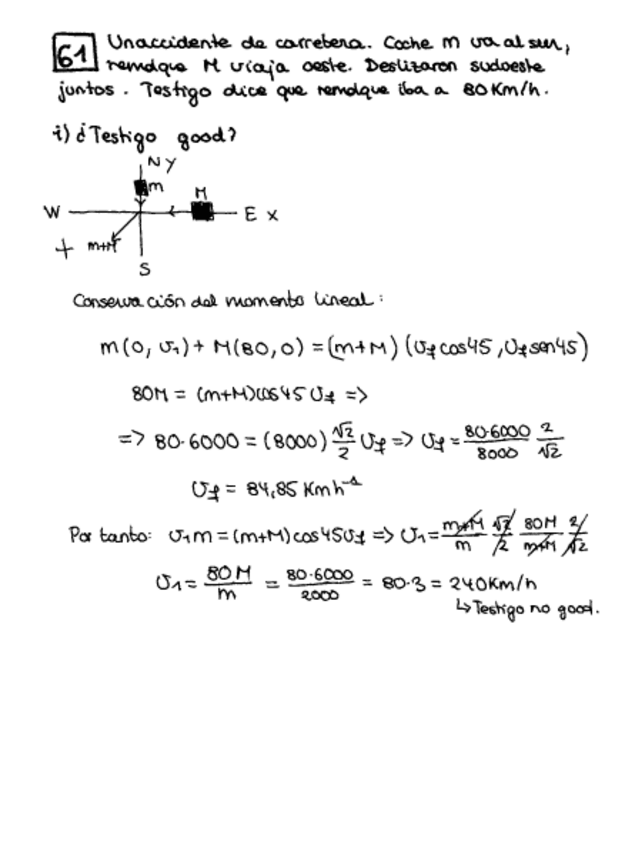 61 Un accidente de carretera. Coche m va al sur,
remolque M viaja oeste. Deslizaron sudoeste
juntos. Testigo dice que remolque iba a 80 Km/h.
i) ¿Testigo good?
N y
m
M
W
E x
+ m+M
S
Conservación del momento lineal:
m(0, v₁) + M(80, 0) = (m+M) (v_f cos45, v_f sen45)
80M = (m+M)cos45 v_f =>
=> 80·6000 = (8000) √2/2 v_f => v_f = 80·6000/8000 2/√2
v_f = 84,85 Km h⁻¹
Por tanto: v₁m = (m+M)cos45 v_f => v₁ = m+M/m √2/2 80M/m+M 2/√2
v₁ = 80M/m = 80·6000/2000 = 80·3 = 240 Km/h
↳ Testigo no good.